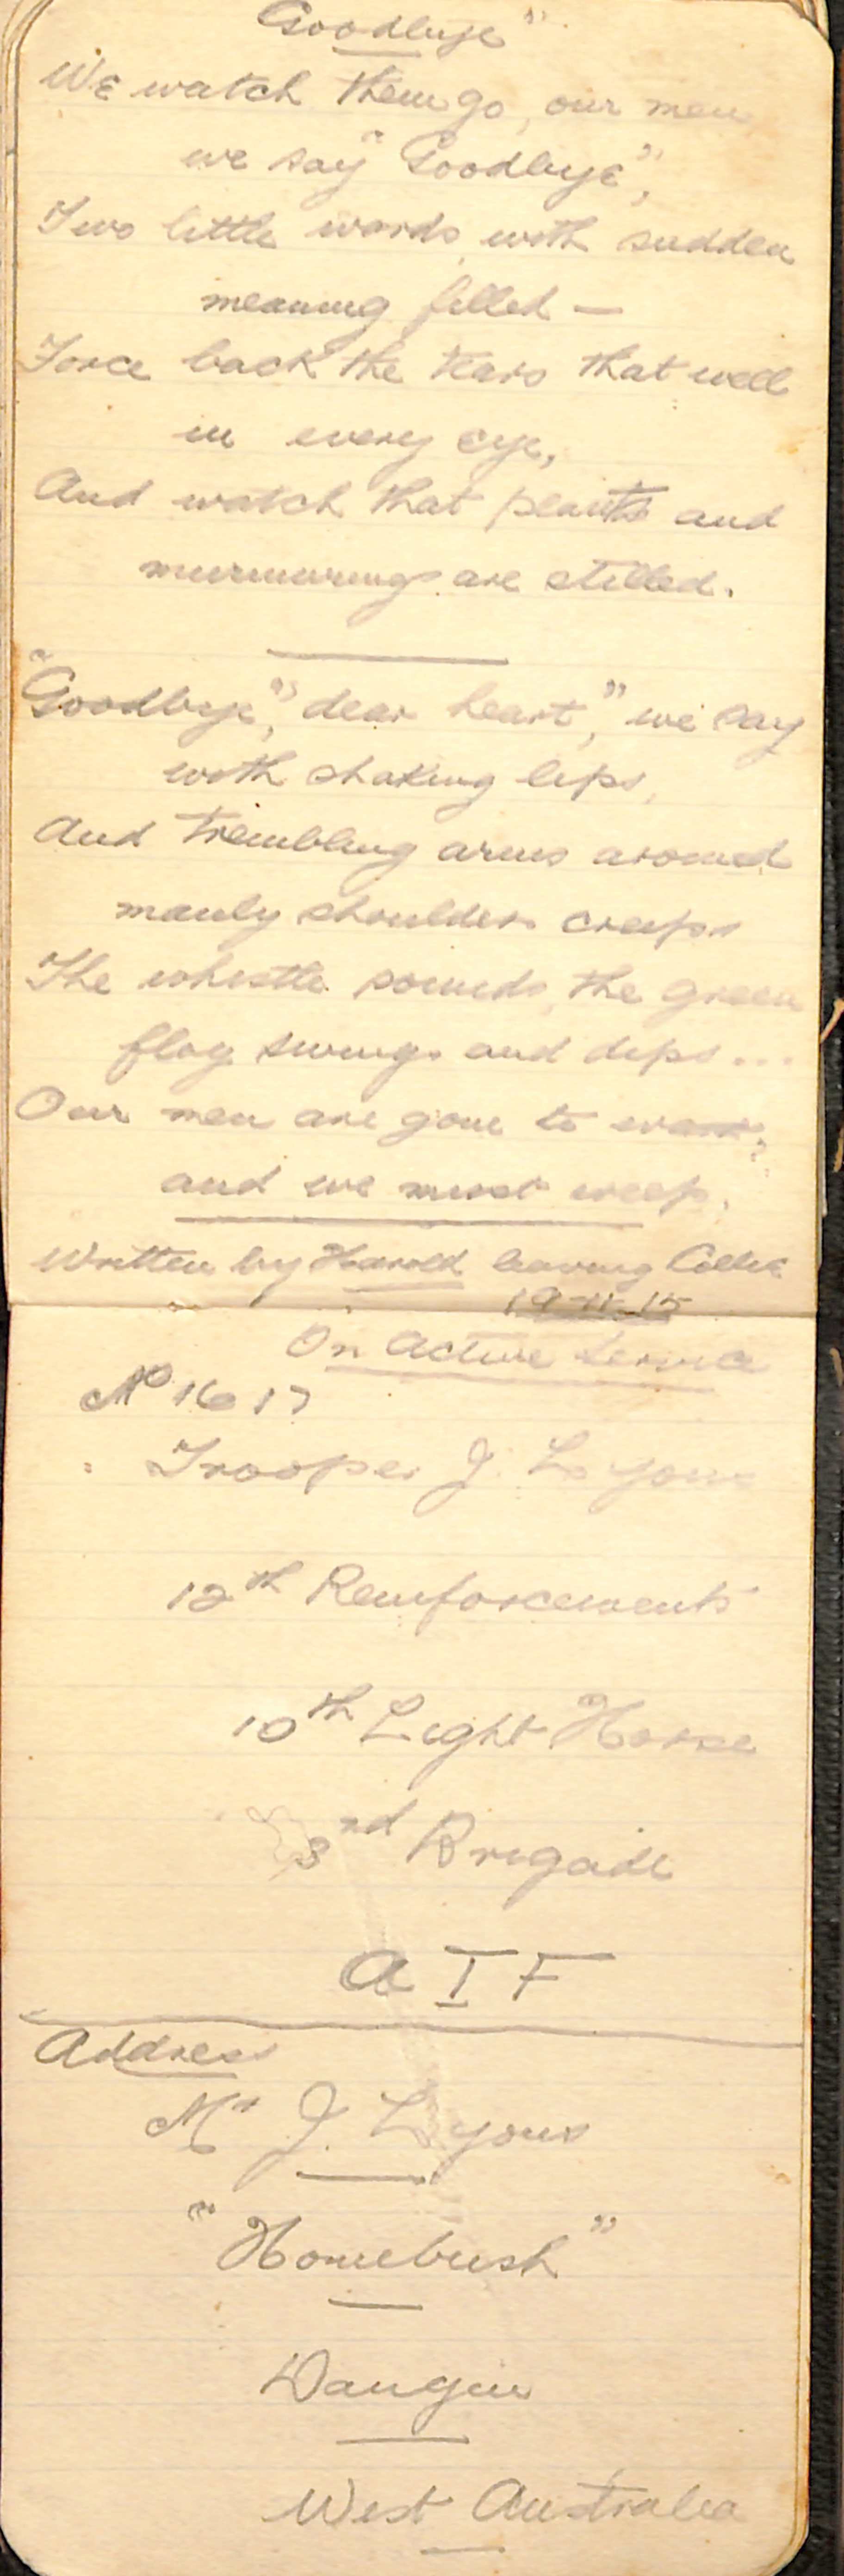 "Goodbye"
We watch them go, our men
we say "Goodbye",
Two little words, with sudden
meaning filled —
Force back the tears that well
in every eye,
And watch that plaints and
murmurings are stilled.
"Goodbye", dear heart," we say
with shaking lips,
And trembling arms around
manly shoulders creeps
The whistle sounds, the green
flag swings and dips...
Our men are gone to war,
and we must weep.
Written by Harold leaving Collie
19-11-15
On Active Service
No 1617
Trooper J. Lyons
12th Reinforcements
10th Light Horse
3rd Brigade
A I F
Address
Mr J. Lyons
"Homebush"
Dangin
West Australia